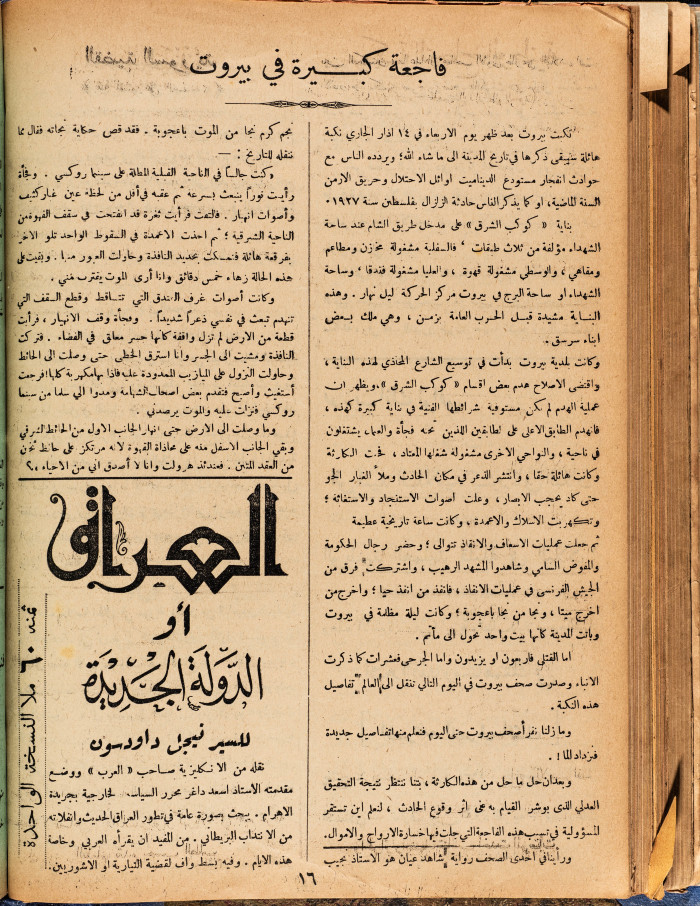 فاجعة كبيرة في بيروت
نكبت بيروت بعد ظهر يوم الاربعاء في ١٤ اذار الجاري نكبة
هائلة سيبقى ذكرها في تاريخ المدينة الى ما شاء الله؛ ويردده الناس مع
حوادث انفجار مستودع الديناميت اوائل الاحتلال وحريق الارمن
السنة الماضية، او كما يذكر الناس حادثة الزلزال بفلسطين سنة ١٩٢٧.
بناية « كوكب الشرق » على مدخل طريق الشام عند ساحة
الشهداء مؤلفة من ثلاث طبقات ، فالسفلية مشغولة مخازن ومطاعم
ومقاهي ، والوسطى مشغولة قهوة ، والعليا مشغولة فندقا ، وساحة
الشهداء او ساحة البرج في بيروت مركز الحركة ليل نهار . وهذه
البناية مشيدة قبل الحرب العامة بزمن ، وهي ملك بعض
ابناء سرسق .
وكانت بلدية بيروت بدأت في توسيع الشارع المحاذي لهذه البناية ،
واقتضى الاصلاح هدم بعض اقسام « كوكب الشرق »، ويظهر ان
عملية الهدم لم تكن مستوفية شرائطها الفنية في بناية كبيرة كهذه ،
فانهدم الطابق الاعلى على الطابقين اللذين تحته فجأة والعمال يشتغلون
في ناحية ، والنواحي الاخرى مشغولة شغلها المعتاد ، فحلت الكارثة
وكانت هائلة حقا ، وانتشر الذعر في مكان الحادث وملأ الغبار الجو
حتى كاد يحجب الابصار ، وعلت اصوات الاستنجاد والاستغاثة ؛
وتكهربت الاسلاك والاعمدة ، وكانت ساعة تاريخية عظيمة
ثم جعلت عمليات الاسعاف والانقاذ تتوالى ؛ وحضر رجال الحكومة
والمفوض السامي وشاهدوا المشهد الرهيب ، واشتركت فرق من
الجيش الفرنسي في عمليات الانقاذ ، فانقذ من انقذ حيا ؛ واخرج من
اخرج ميتا ، ونجا من نجا باعجوبة ؛ وكانت ليلة مظلمة في بيروت
وباتت المدينة كأنها بيت واحد تحول الى مأتم .
اما القتلى فاربعون او يزيدون واما الجرحى فعشرات كما ذكرت
الانباء وصدرت صحف بيروت في اليوم التالي تنقل الى العالم تفاصيل
هذه النكبة .
وما زلنا نقرأ صحف بيروت حتى اليوم فنعلم منها تفاصيل جديدة
فنزداد الما ! .
وبعد ان حل ما حل من هذه الكارثة ، بتنا ننتظر نتيجة التحقيق
العدلي الذي بوشر القيام به على اثر وقوع الحادث ، لنعلم اين تستقر
المسؤولية في تسبب هذه الفاجعة التي جلت فيها خسارة الارواح والاموال.
ورأينا في احدى الصحف رواية شاهد عيان هو الاستاذ نجيب
نجم كرم نجا من الموت باعجوبة . فقد قص حكاية نجاته فقال مما
ننقله للتاريخ : —
وكنت جالسا في الناحية القبلية المطلة على سينما روكسي . وفجأة
رأيت نوراً ينبعث بسرعة ثم عقبه في أقل من لحظة عين غبار كثيف
وأصوات انهيار . فالتفت فرأيت ثغرة قد انفتحت في سقف القهوة من
الناحية الشرقية ؛ ثم اخذت الاعمدة في السقوط الواحد تلو الاخر
بفرقعة هائلة فتمسكت بحديد النافذة وحاولت العبور منها . وبقيت على
هذه الحالة زهاء خمس دقائق وانا أرى الموت يقترب مني .
وكانت أصوات غرف الفندق التي تتساقط وقطع السقف التي
تنهدم تبعث في نفسي ذعراً شديداً . وفجأة وقف الانهيار ، فرأيت
قطعة من الارض لم تزل واقفة كأنها جسر معلق في الفضاء . فتركت
النافذة ومشيت الى الجسر وانا استرق الخطى حتى وصلت الى الحائط
وحاولت النزول على الميازيب الممدودة عليه فاذا بها مكهربة كلها فرجعت
أستغيث وأصيح فتقدم بعض اصحاب الشهامة ومدوا الي سلما من سينما
روكسي فنزلت عليه والموت يرصدني .
وما وصلت الى الارض حتى انهار الجانب الاول من الحائط الشرقي
وبقي الجانب الاسفل منه على محاذاة القهوة لانه مرتكز على حائط ثخن
من العقد المتين . فعندئذ هرولت وانا لا أصدق اني من الاحياء .،؟
العراق
أو
الدولة الجديدة
للسير نيجل داودسون
نقله من الانكليزية صاحب « العرب » ووضع
مقدمته الاستاذ اسعد داغر محرر السياسة الخارجية بجريدة
الاهرام . يبحث بصورة عامة في تطور العراق الحديث وانفلاته
من الانتداب البريطاني . من المفيد ان يقرأه العربي وخاصة
هذه الايام . وفيه بسط واف لقضية التيارية او الاشوريين .
ثمنه ٦٠ ملا النسخة الواحدة
١٦